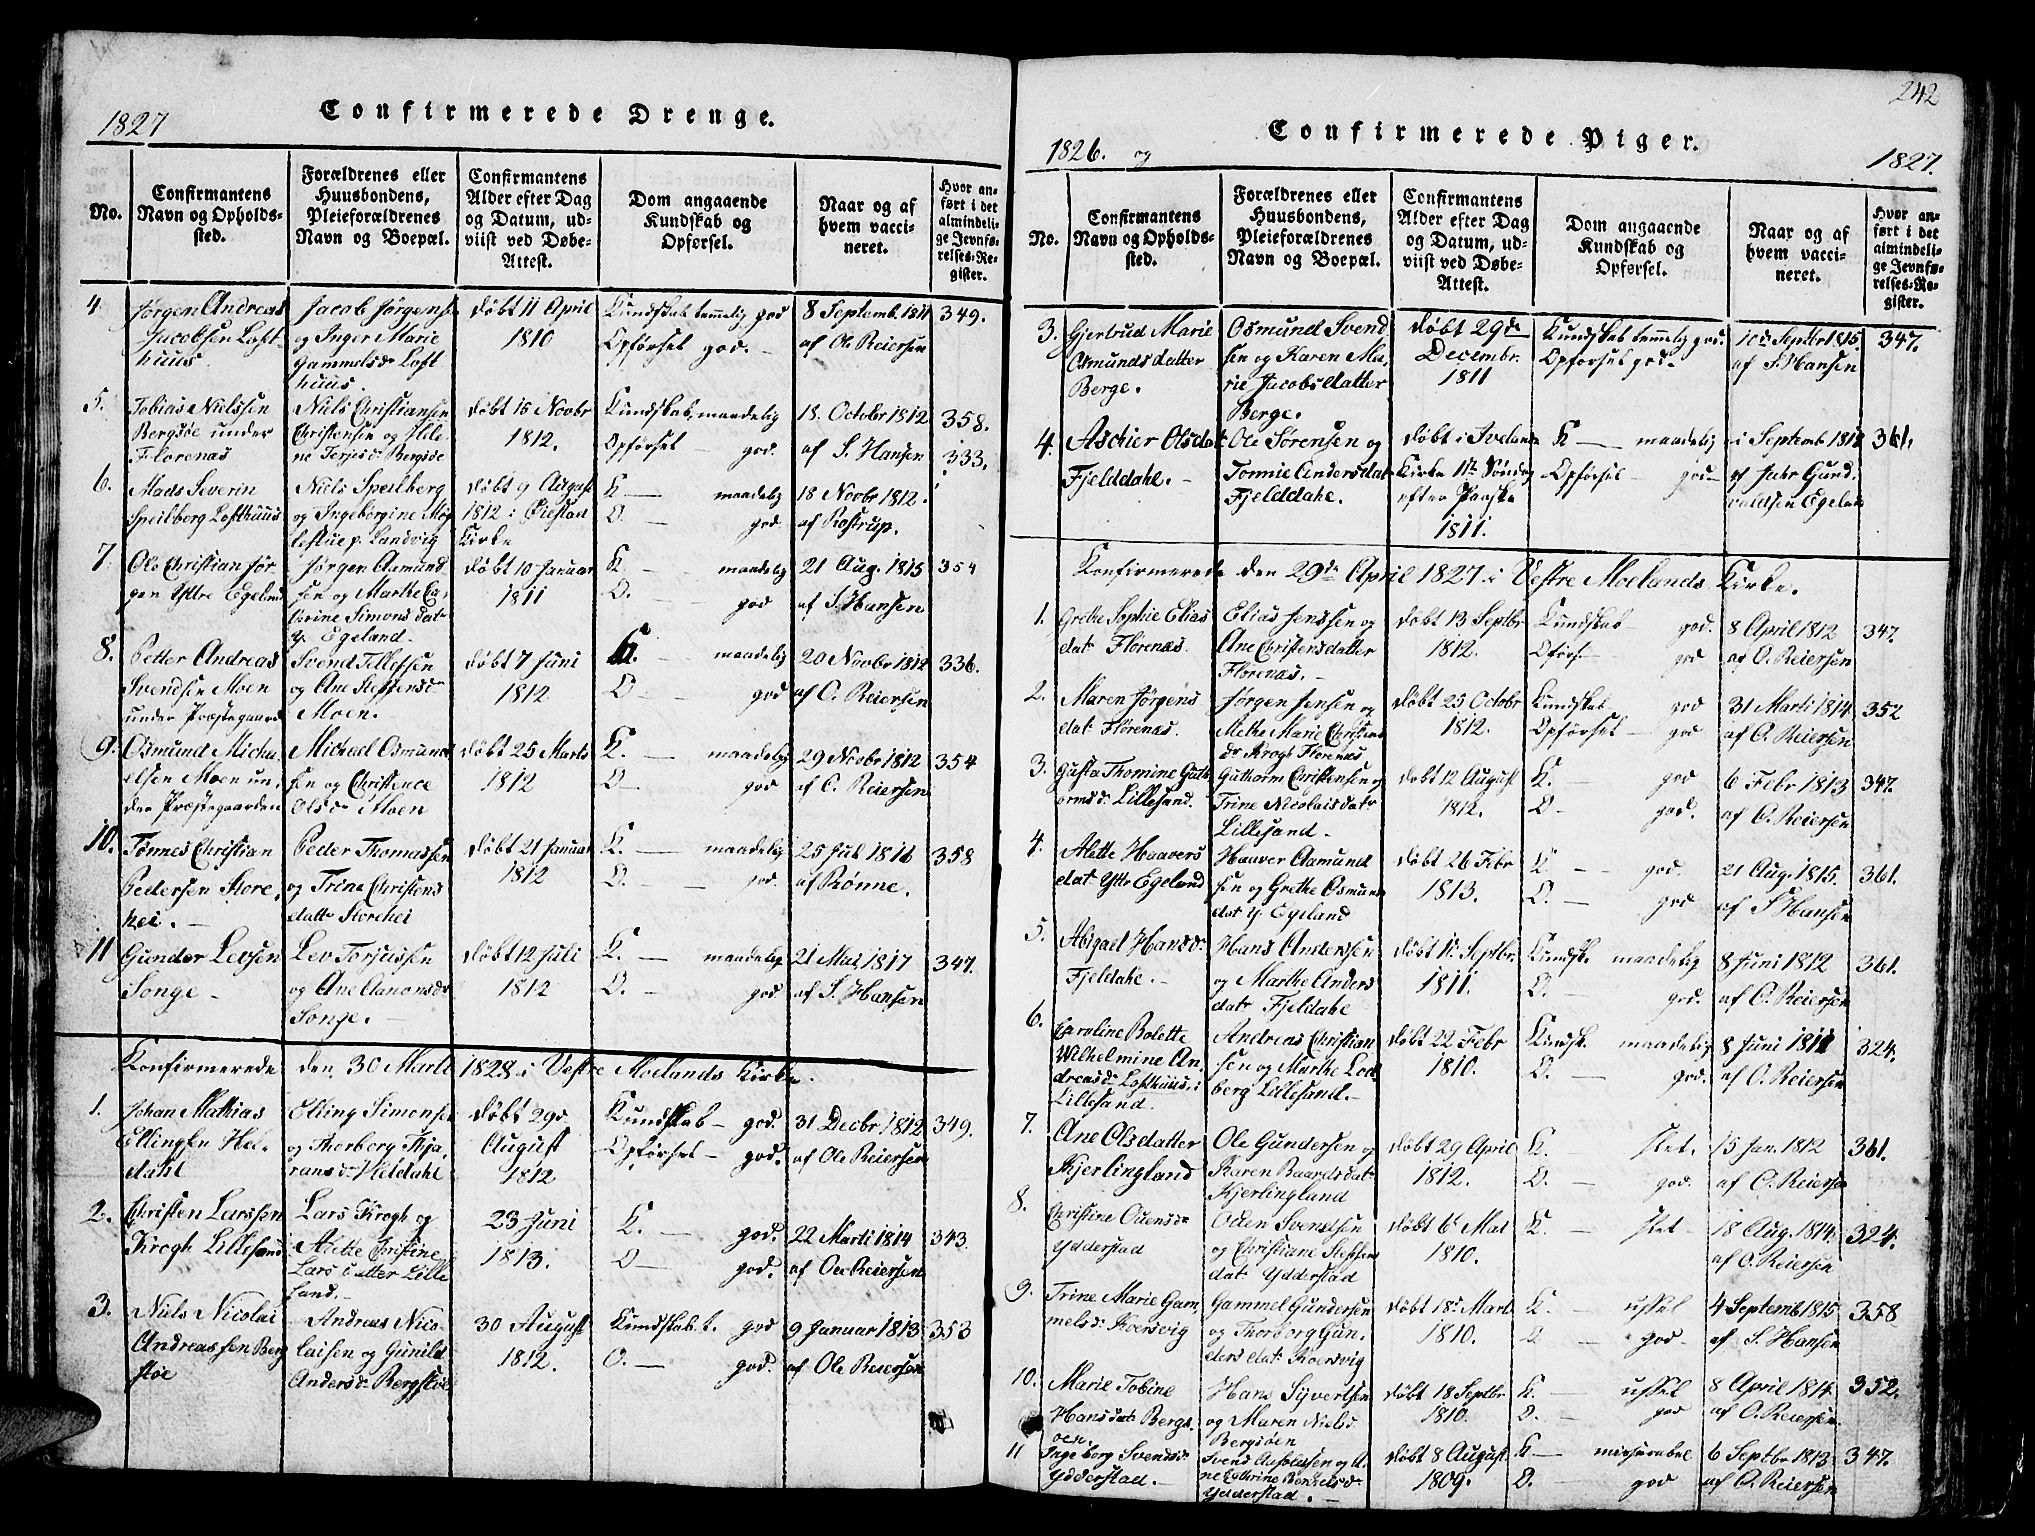 1827
Confirmerede Drenge.
No.
Confirmantens Navn og Opholds-sted.
Forældrenes eller Huusbondens, Pleieforældrenes Navn og Boepæl.
Confirmantens Alder efter Dag og Datum, ud-viist ved Døbe-Attest.
Dom angaaende Kundskab og Opførsel.
Naar og af hvem vacci-neret.
Hvor an-ført i det almindeli-ge Jevnfø-relses-Re-gister.
4. Jørgen Andreas Jacobsen Loft-huus.
Jacob Jørgens. og Inger Marie Gammelsdr Loft huus.
døbt 11 April 1810
Kundskab temmelig god
Opførsel god.
8 Septemb. 1811 af Ole Reiersen
349.
5. Tobias Nielssen Bergsøe under Florenas
Niels Christiansen Christensen og Ille-ne Terjesdr Bergsøe
døbt 15 Novbr 1812.
Kundskab, maadelig
Opførsel god.
18. Octobr 1812 af S. Hansen
358.
333.
6. Mads Severin Speilberg Lofthuus
Niels Speilberg og Ingeborgine Møg lestue p. Landvig
døbt 9 August 1812 i Øiestad Kirke
K maadelig
O. god
18 Novbr 1812. af Rostrup.
7. Ole Christian Jør gen Yttre Egeland
Jørgen Aamund sen og Marthe Ca-trine Simonsdat Y. Egeland.
døbt 10 Januar 1811
K. maadelig
O. god
21 Aug. 1815 af S. Hansen
354
8. Petter Andreas Svendsen Moen under Præstegaard
Svend Tellefsen og Ane Steffensdr Moen.
døbt 7 Juni 1812
K. maadelig
O. god
20 Novbr 1812 af O. Reiersen
336.
9. Osmund Micha elsen Moen un-der Præstegaarden
Michael Osmund sen og Christence Olsdr Moen
døbt 25 Marts 1812
K. maadelig
O god
29 Novbr 1812 af O. Reiersen
354
10. Tønnes Christian Pedersen Store-hei.
Peder Thomassen og Trine Christens datter Storehei
døbt 21 Januar 1812
K. maadelig
O. god.
25 Jul 1816 af Rønne.
358
11 Gunder Levsen Songe
Lev Torjussen og Ane Aanonsdr Songe.
døbt 12 Juli 1812
K. maadelig
O. god
21 Mai 1817 af S. Hansen
347.
Konfirmerede den 30 Marti 1828 i Vestre Moelands Kirke.
1. Johan Mathias Ellingsen Hel-dahl
Elling Simonsen og Thorborg Thja-ransdr Heldahl
døbt 29d August 1812
Kundskab god.
Opførsel god.
31 Decbr 1812 af Ole Reiersen
349.
2. Christen Larssøn Krogh Lillesand
Lars Krogh og Alethe Christine Larsdatter Lille sand.
23 Juni 1813.
K. god.
O god.
22 Marti 1814 af Ole Reiersen
343
3. Niels Nicolai Andreassen Berg støe
Andreas Nico laisen og Gunild Andersdr Bergstøe
30 August 1812.
Kundskab t. god
O. god.
9 Januar 1813 af Ole Reiersen
353
242
1826. og
Confirmerede Piger.
1827.
No.
Confirmantens Navn og Opholds-sted.
Forældrenes eller Huusbondens, Pleieforældrenes Navn og Boepæl.
Confirmantens Alder efter Dag og Datum, ud-viist ved Døbe-Attest.
Dom angaaende Kundskab og Opførsel.
Naar og af hvem vacci-neret.
Hvor an-ført i det almindeli-ge Jevnfø-relses-Re-gister.
3. Gjertrud Marie Osmundsdatter Berge.
Osmund Svend sen og Karen Ma-rie Jacobsdatter Berge.
døbt 29de Decembr. 1811
Kundskab temmelig god.
Opførsel god.
10d Septbr 1815. af S. Hansen
347.
4. Aschier Olsdat Fjelddahl.
Ole Sørensen og Tonnie Andersdat Fjelddahl.
døbt i Iveland Kirke 1ste Søndag efter Paaske 1811.
K maadelig
Opførsel god
i Septemb 1812 af Jahr Gund valdsen Egeland
361.
Konfirmerede den 29de April 1827 i Vestre Moelands Kirke.
1. Grethe Sophie Elias dat Florenæs.
Elias Jenssen og Ane Christensdatter Florenæs.
døbt 13 Septbr 1812.
Kundskab god.
Opførs. god
8 April 1812 af O. Reiersen
347.
2. Maren Jørgens dat Florenæs.
Jørgen Jensen og Methe Marie Christens dr Krogh Florenæs
døbt 25 Octobr 1812.
Kundskab god
Opførsel god
31 Marti 1814 af O. Reiersen
352
3. Gusta Thomine Guth ormsdr Lillesand.
Guthorm Christensen og Trine Nicolaisdatr Lillesand
døbt 12 August 1812.
K. god
O. god.
6 Febr 1813 af O. Reiersen
347.
4. Alette Haavers dat Yttr Egeland
Haaver Aamund sen og Grethe Osmuns dat Y. Egeland
døbt 26 Febr 1813.
K god.
O. god
21 Aug. 1815. af S Hansen
361.
5. Abigael Hansdr Fjeldahl.
Hans Anderssen og Marthe Anders dat Fjeldahl
døbt 1ste Septbr. 1811.
Kundsk. maadelig
O. god.
8 Juni 1812 af O. Reiersen
361.
6. Caroline Bolette Wilhelmine An-dreasdr Lofthuus i Lillesand.
Andreas Christian sen og Marthe Lod berg Lillesand.
døbt 22 Febr 1810.
Kundsk. maadelig
O. god.
8 Juni 1811 af O. Reiersen
324.
7. Ane Olsdatter Kjerlingland
Ole Gundersen og Karen Baardsdatr Kjerlingland
døbt 29 April 1812.
K. slet.
O. god.
15 Jan. 1812 af O. Reiersen
361.
8. Christine Odensdr Ydderstad
Oden Svendsen og Christiane Steffens dat Ydderstad
døbt 6 Mai 1810.
K. slet
18 Aug. 1814. af O. Reiersen
324.
9. Trine Marie Gam-melsdr Koersvig
Gammel Gundersen og Thorborg Gun-dersdat Koersvig
døbt 18d Mart 1810.
K. ussel
O god
4 Septemb 1815 af S. Hansen
358
10. Marie Tobine Hansdat Bergs-øen.
Hans Syvertsen og Maren Nielsd. Bergsøen
døbt 18 Septbr 1810.
K. ussel
O. god
8 April 1814. af O. Reiersen
352.
11 Ingeborg Svendsdr Ydderstad.
Svend Aslaksen og A-ne Cathrine Bendelsdr Ydderstad.
døbt 8 August 1809.
K miserabel
O. god
6 Septbr 1813 af O. Reiersen
347.